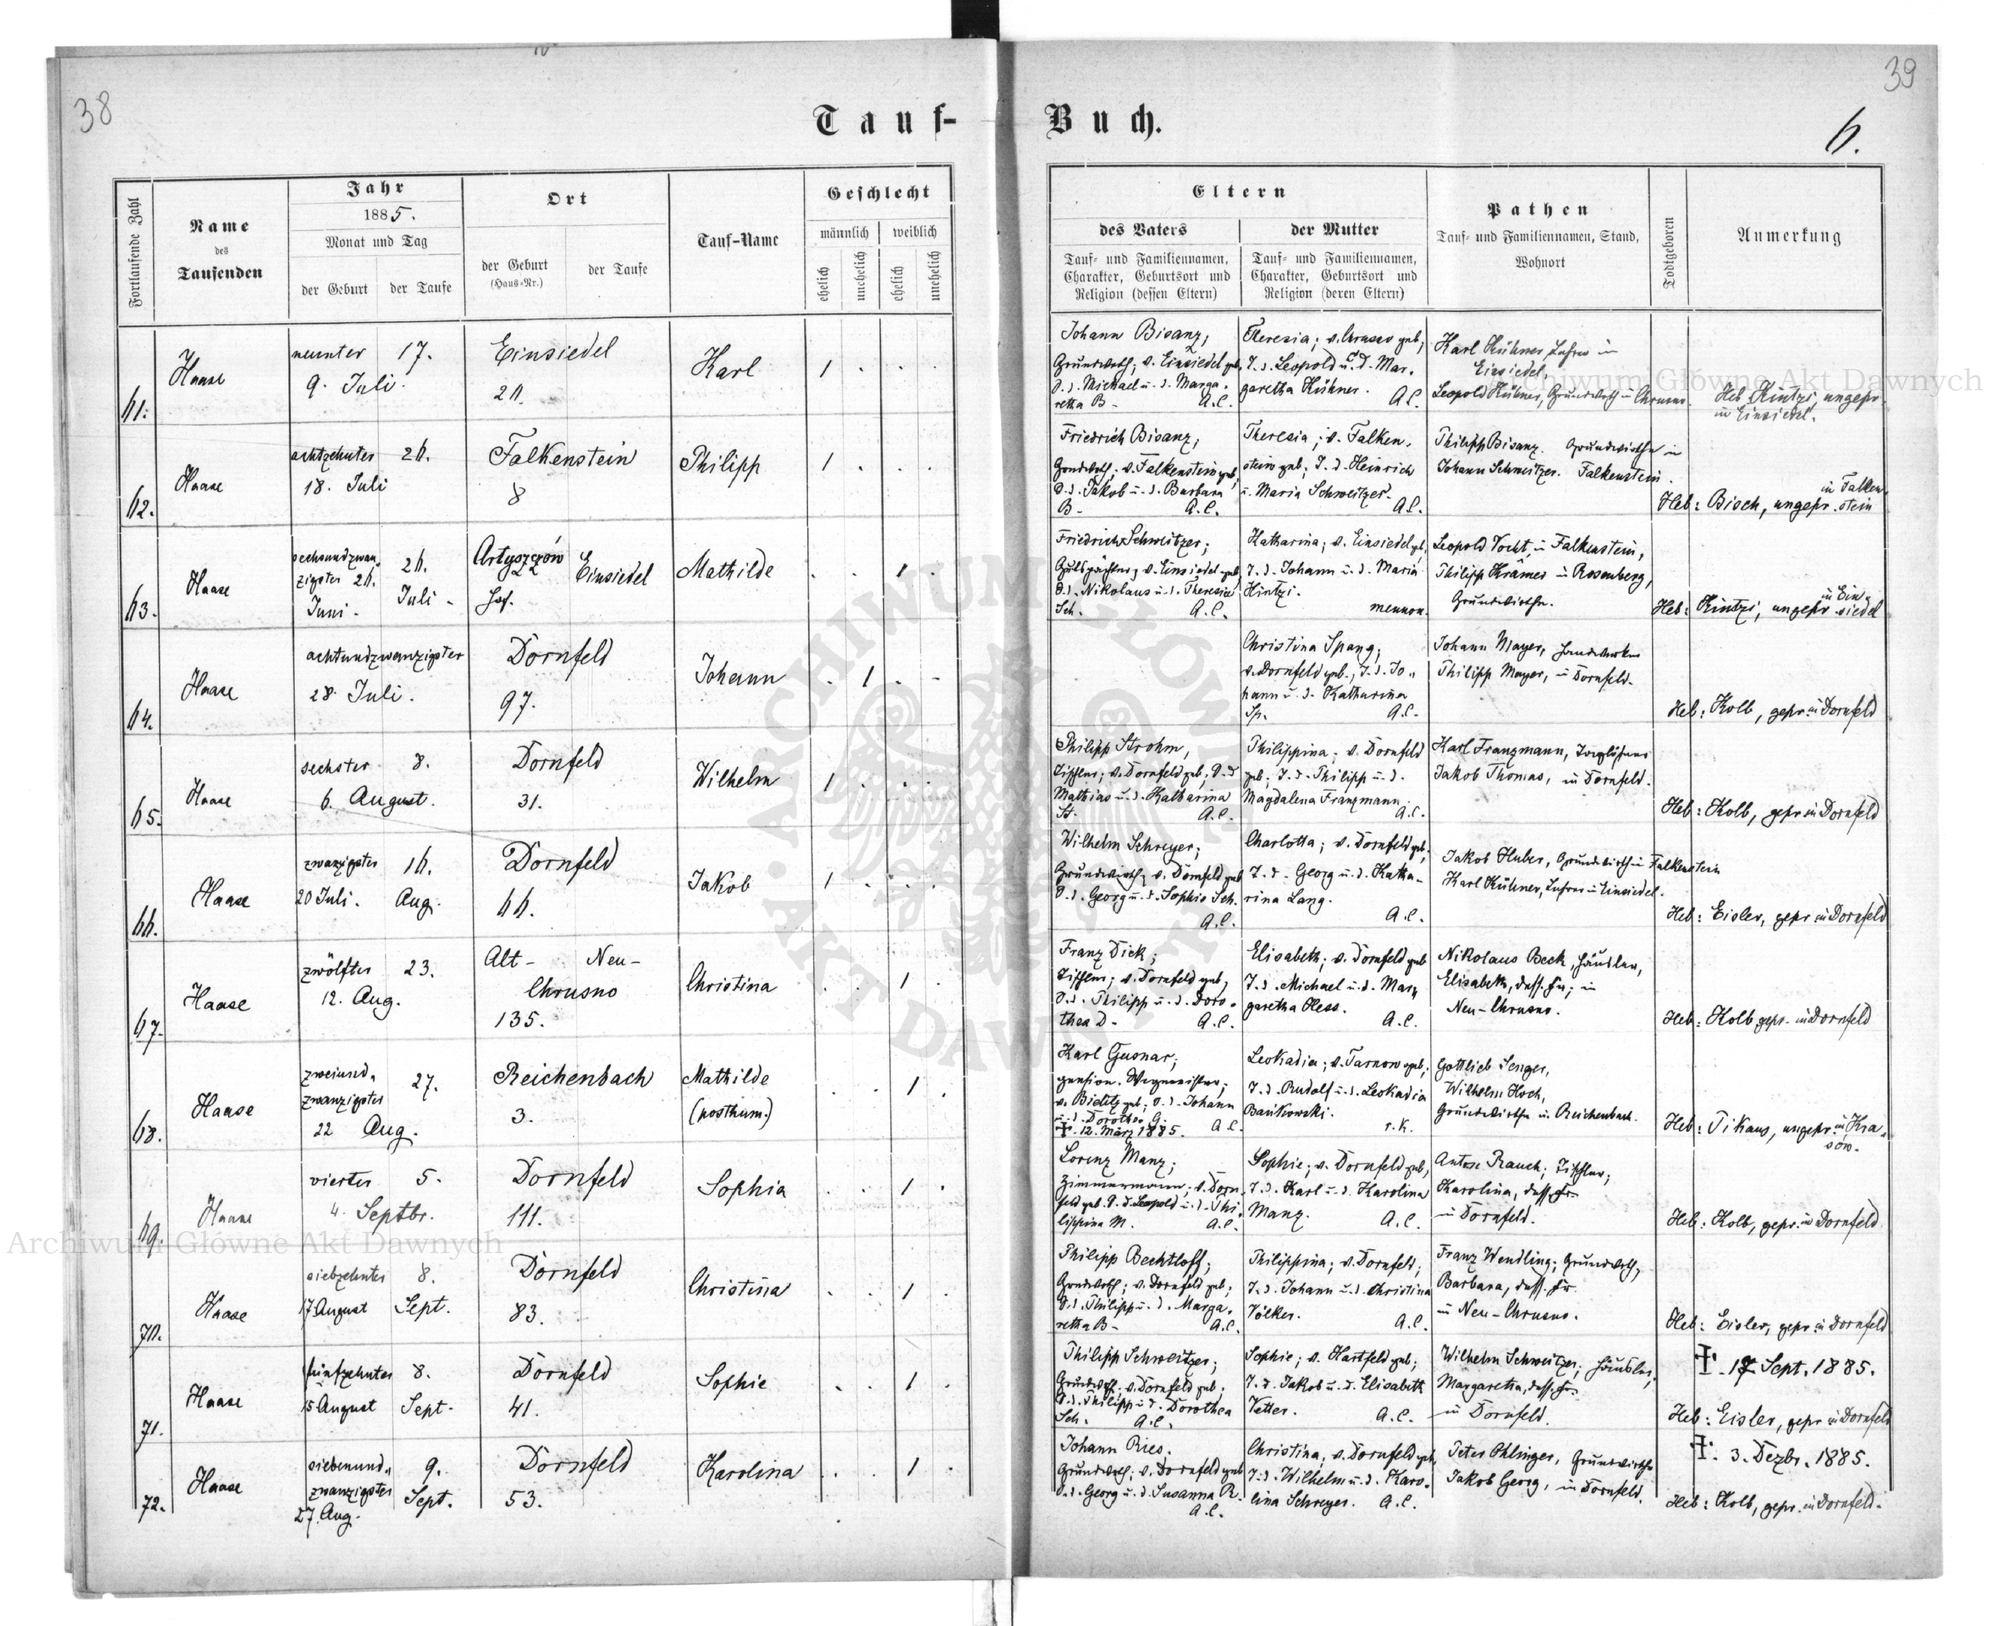 38
39
Tauf-
Buch.
6.
Fortlaufende Zahl
Name
des
Taufenden
Jahr
1885.
Monat und Tag
der Geburt
der Taufe
Ort
der Geburt
(Haus-Nr.)
der Taufe
Tauf-Name
Geschlecht
männlich
weiblich
ehelich
unehelich
ehelich
unehelich
Eltern
des Vaters
der Mutter
Tauf- und Familiennamen,
Charakter, Geburtsort und
Religion (dessen Eltern)
Tauf- und Familiennamen,
Charakter, Geburtsort und
Religion (deren Eltern)
Pathen
Tauf- und Familiennamen, Stand,
Wohnort
Todtgeboren
Anmerkung
61.
Haase
neunter 17.
9. Juli.
Einsiedel
20.
Karl
1 . . .
Johann Bisanz,
Grundwirth; v. Einsiedel geb.
S. d. Michael u. d. Marga-
retha B- A.C.
Theresia; v. Chrusno geb,
T. d. Leopold u. d. Mar-
garetha Kühner. A.C.
Karl Kühner, Lehrer in
Einsiedel,
Leopold Kühner, Grundwirth in Chrusno.
Heb. Kintzi, ungepr.
in Einsiedel.
62.
Haase
achtzehnter 26.
18. Juli
Falkenstein
8
Philipp
1 . . .
Friedrich Bisanz,
Grundwirth; v. Falkenstein geb,
S. d. Jakob u. d. Barbara
B- A.C.
Theresia; v. Falken-
stein geb; T. d. Heinrich
u. Maria Schweitzer. A.C.
Philipp Bisanz. Grundwirthe in
Johann Schweitzer. Falkenstein.
Heb: Bisch, ungepr. in Falken-
stein
63.
Haase
sechsundzwan-
zigster 26.
Juni-
26.
Juli-
Artyszczów
Hof.
Einsiedel
Mathilde
. . 1 .
Friedrich Schweitzer;
Gutspächter; v. Einsiedel geb,
S. d. Nikolaus u. d. Theresia
Sch. A.C.
Katharina; v. Einsiedel geb,
T. d. Johann u. d. Maria
Hintzi.
mennon.
Leopold Vocht, in Falkenstein,
Philipp Krämer in Rosenberg,
Grundwirthe.
Heb: Kintzi, ungepr. in Ein-
siedel
64.
Haase
achtundzwanzigster
28. Juli.
Dornfeld
97.
Johann
. 1 . .
Christina Spang;
v. Dornfeld geb., T. d. Jo-
hann u. d. Katharina
Sp. A.C.
Johann Mayer, Handwerker
Philipp Mayer, in Dornfeld.
Heb: Kolb, gepr. in Dornfeld
65.
Haase
sechster 8.
6. August.
Dornfeld
31.
Wilhelm
1 . . .
Philipp Strohm,
Tischler; v. Dornfeld geb, S. d.
Mathias u. d. Katharina
St. A.C.
Philippina; v. Dornfeld
geb; T. d. Philipp u. d.
Magdalena Franzmann.
A.C.
Karl Franzmann, Taglöhner
Jakob Thomas, in Dornfeld.
Heb: Kolb, gepr. in Dornfeld
66.
Haase
zwanzigster 16.
20 Juli. Aug.
Dornfeld
66.
Jakob
1 . . .
Wilhelm Schreyer;
Grundwirth, v. Dornfeld geb
S. d. Georg u. d. Sophie Sch.
A.C.
Charlotta; v. Dornfeld geb;
T. d. Georg u. d. Katha-
rina Lang.
A.C.
Jakob Huber, Grundwirth in Falkenstein
Karl Kühner, Lehrer in Einsiedel.
Heb: Eisler, gepr. in Dornfeld
67.
Haase
zwölfter 23.
12. Aug.
Alt- Neu-
Chrusno
135.
Christina
. . 1 .
Franz Dick;
Tischler; v. Dornfeld geb,
S. d. Philipp u. d. Doro-
thea D- A.C.
Elisabeth; v. Dornfeld geb
T. d. Michael u. d. Mar-
garetha Hess.
A.C.
Nikolaus Beck, Häusler,
Elisabeth, dess. Fr; in
Neu-Chrusno.
Heb: Kolb gepr. in Dornfeld
68.
Haase
zweiund-
zwanzigster
22 Aug.
27.
Reichenbach
3.
Mathilde
(posthum.)
. . 1 .
Karl Gusnar;
pension. Wegmeister;
v. Bielitz geb; S. d. Johann
u. d. Dorothea G.
† 12. März 1885. A.C.
Leokadia; v. Tarnow geb;
T. d. Rudolf u. d. Leokadia
Bańkowski.
r.k.
Gottlieb Senger,
Wilhelm Koch,
Grundwirthe in Reichenbach.
Heb: Pikaus, ungepr. in Kra-
sów.
69.
Haase
vierter 5.
4. Septbr.
Dornfeld
111.
Sophia
. . 1 .
Lorenz Manz;
Zimmermann, v. Dorn-
feld geb. S. d. Leopold u. d. Phi-
lippina M. A.C.
Sophie; v. Dornfeld geb,
T. d. Karl u. d. Karolina
Manz. A.C.
Anton Rauch; Tischler;
Karolina, dess. Fr.
in Dornfeld.
Heb: Kolb, gepr. in Dornfeld
70.
Haase
siebzehnter 8.
17 August Sept.
Dornfeld
83.
Christina
. . 1 .
Philipp Bechtloff;
Grundwirth; v. Dornfeld geb;
S. d. Philipp u. d. Marga-
retha B- A.C.
Philippina; v. Dornfeld;
T. d. Johann u. d. Christina
Völker. A.C.
Franz Wendling; Grundwirth,
Barbara, dess. Fr.
in Neu-Chrusno.
Heb: Eisler, gepr. in Dornfeld
71.
Haase
fünfzehnter 8.
15 August Sept.
Dornfeld
41.
Sophie
. . 1 .
Philipp Schweitzer;
Grundwirth, v. Dornfeld geb;
S. d. Philipp u. d. Dorothea
Sch. A.C.
Sophie; v. Hartfeld geb;
T. d. Jakob u. d. Elisabeth
Vetter. A.C.
Wilhelm Schweitzer; Häusler,
Margaretha, dess. Fr.
in Dornfeld.
† Sept. 1885.
Heb: Eisler, gepr. in Dornfeld
72.
Haase
siebenund-
zwanzigster
27. Aug.
9.
Sept.
Dornfeld
53.
Karolina
. . 1 .
Johann Ries.
Grundwirth; v. Dornfeld geb
S. d. Georg u. d. Susanna R.
A.C.
Christina, v. Dornfeld geb,
T. d. Wilhelm u. d. Karo-
lina Schreyer. A.C.
Peter Ohlinger, Grundwirthe
Jakob Georg, in Dornfeld.
† 3. Dezbr. 1885.
Heb: Kolb, gepr. in Dornfeld.
Archiwum Główne Akt Dawnych
Archiwum Główne Akt Dawnych
ARCHIWUM GŁÓWNE AKT DAWNYCH